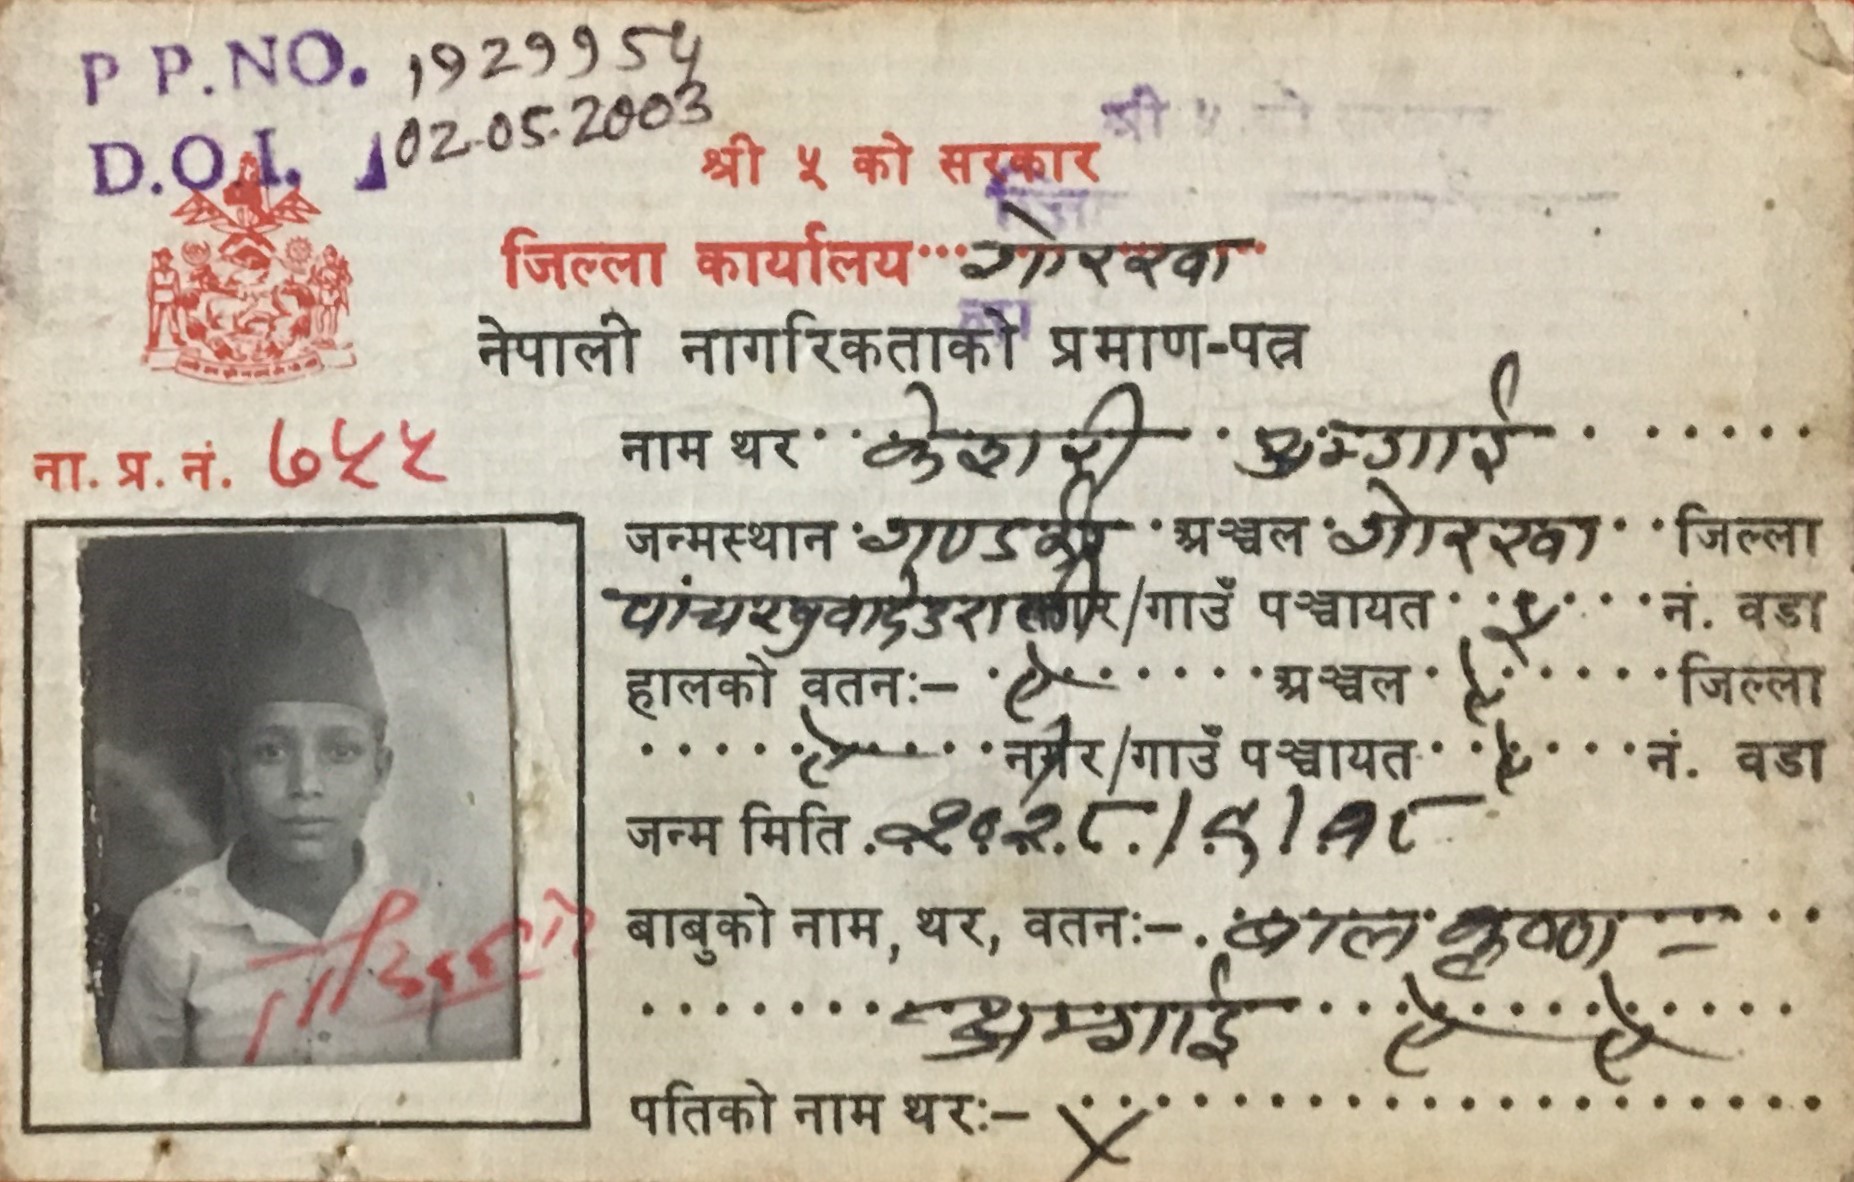 P P.NO. 1929954
D.O.I. 02-05-2003
श्री ५ को सरकार
श्री ५ को सरकार
जिल्ला कार्यालय गोरखा
नेपाली नागरिकताको प्रमाण-पत्र
ना. प्र. नं. ७५५
नाम थर केशरी अम्गाई
जन्मस्थान गण्डकी अञ्चल गोरखा जिल्ला
पांचखुवादेउराली नगर/गाउँ पञ्चायत ५ नं. वडा
हालको वतनः- ऐ अञ्चल ऐ जिल्ला
ऐ नगर/गाउँ पञ्चायत ऐ नं. वडा
जन्म मिति २०२८/९/१८
बाबुको नाम, थर, वतनः- बाल कृष्ण -
- अम्गाई ऐ ऐ
पतिको नाम थरः- X